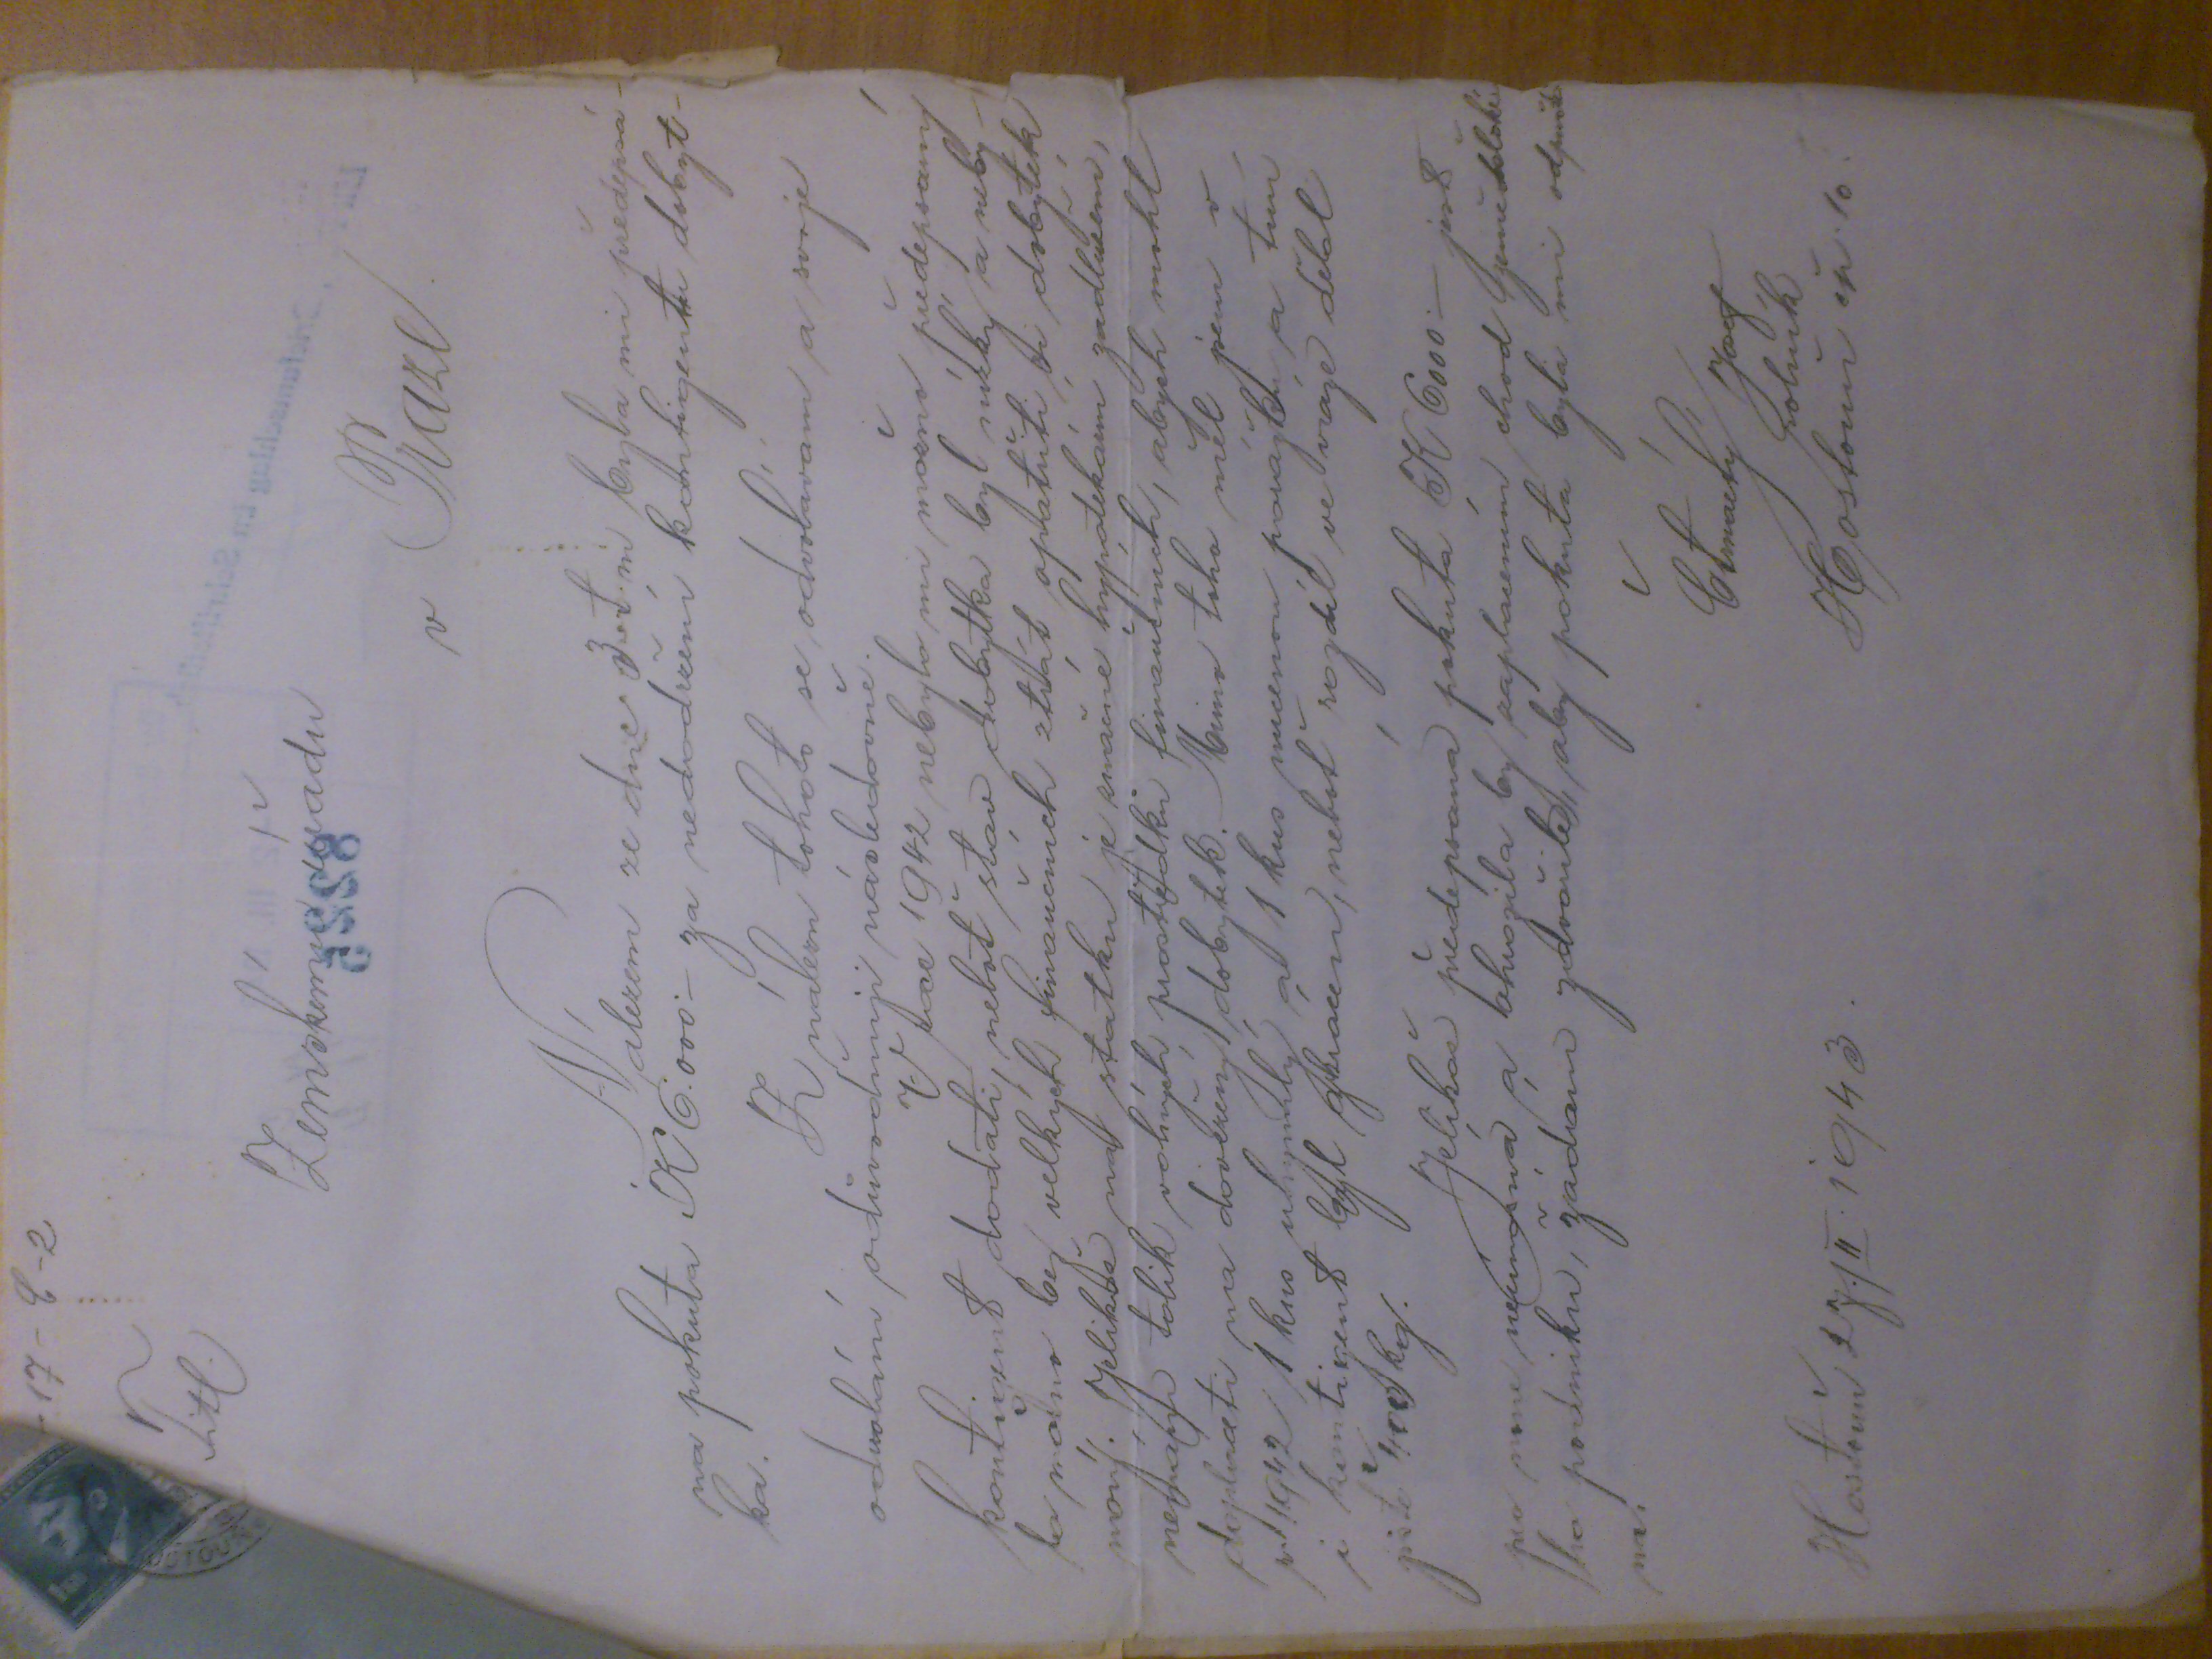 - 17 - C - 2
Titl.
Zemskému úřadu
8225
v Praze.
Nálezem ze dne 3. t. m byla mi předepsá-
na pokuta K 6.000·- za nedodržení kontigentu dobyt-
ka.
Z nálezu tohoto se odvolávám a svoje
odvolání odůvodňuji následovně.
V roce 1942 nebylo mi možno předepsaný
kontigent dodati, neboť stav dobytka byl nízký a neby-
lo možno bez velkých finančních ztrát opatřiti si dobytek
nový. Jelikož na statku je značné hypotekární zadlužení,
nemám tolik volných prostředků finančních, abych mohl
dopláceti na dovezený dobytek. Mimo toho měl jsem v
r 1942 1 kus uhynulý a 1 kus nucenou porážku a tím
i kontigent byl zkrácen, neboť rozdíl ve váze dělal
jistě 400 kg.
Jelikož předepsaná pokuta K 6000·- jest
pro mne neúnosná a ohrozila by zaplacením chod zemědělské-
ho podniku, žádám zdvořile, aby pokuta byla mi odpuště
na.
Čtrnáctý Josef
rolník
Hostouň 27./II. 1943.
Hostouň čp. 10.